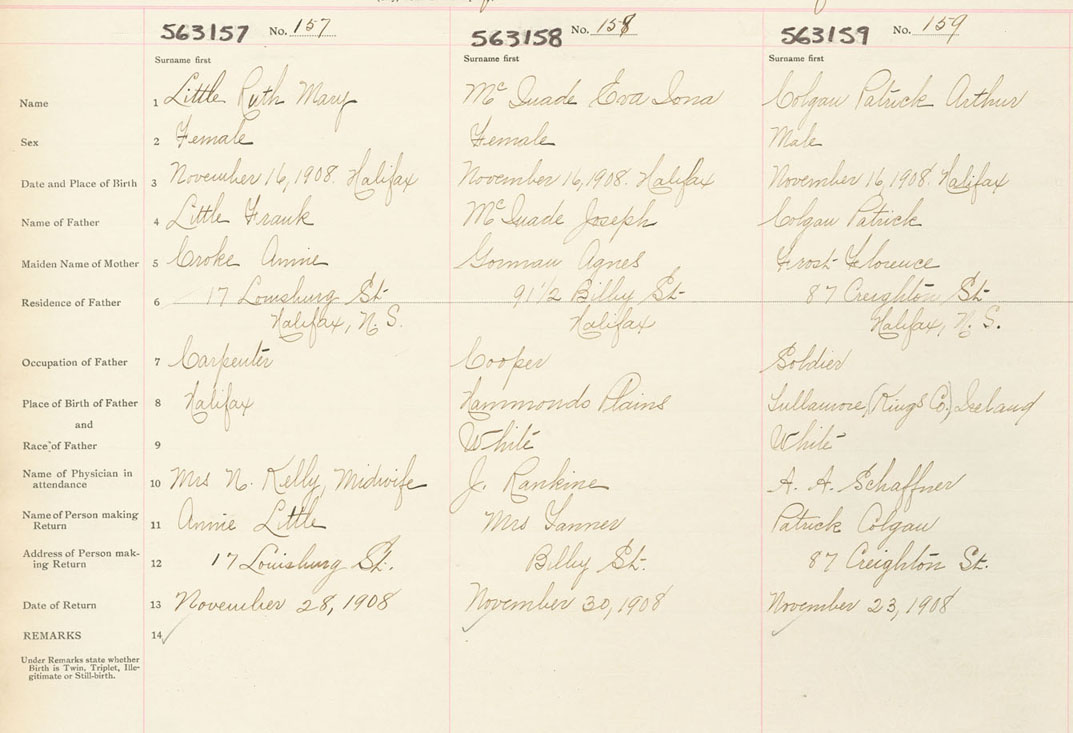 563157 No. 157 563158 No. 158 563159 No. 159
Surname first Surname first Surname first
Name 1 Little Ruth Mary Mc Quade Eva Iona Colgan Patrick Arthur
Sex 2 Female Female Male
Date and Place of Birth 3 November 16, 1908. Halifax November 16, 1908. Halifax November 16, 1908. Halifax
Name of Father 4 Little Frank Mc Quade Joseph Colgan Patrick
Maiden Name of Mother 5 Croke Annie Gorman Agnes Frost Florence
Residence of Father 6 17 Louisburg St 91 1/2 Bilby St 87 Creighton St
Halifax, N. S. Halifax Halifax, N. S.
Occupation of Father 7 Carpenter Cooper Soldier
Place of Birth of Father 8 Halifax Hammonds Plains Tullamore, (Kings Co), Ireland
and
Race of Father 9 White White
Name of Physician in attendance 10 Mrs N. Kelly, Midwife J. Rankine A. A. Schaffner
Name of Person making Return 11 Annie Little Mrs Tanner Patrick Colgan
Address of Person mak-ing Return 12 17 Louisburg St. Bilby St. 87 Creighton St.
Date of Return 13 November 28, 1908 November 30, 1908 November 23, 1908
REMARKS 14
Under Remarks state whether
Birth is Twin, Triplet, Ille-
gitimate or Still-birth.